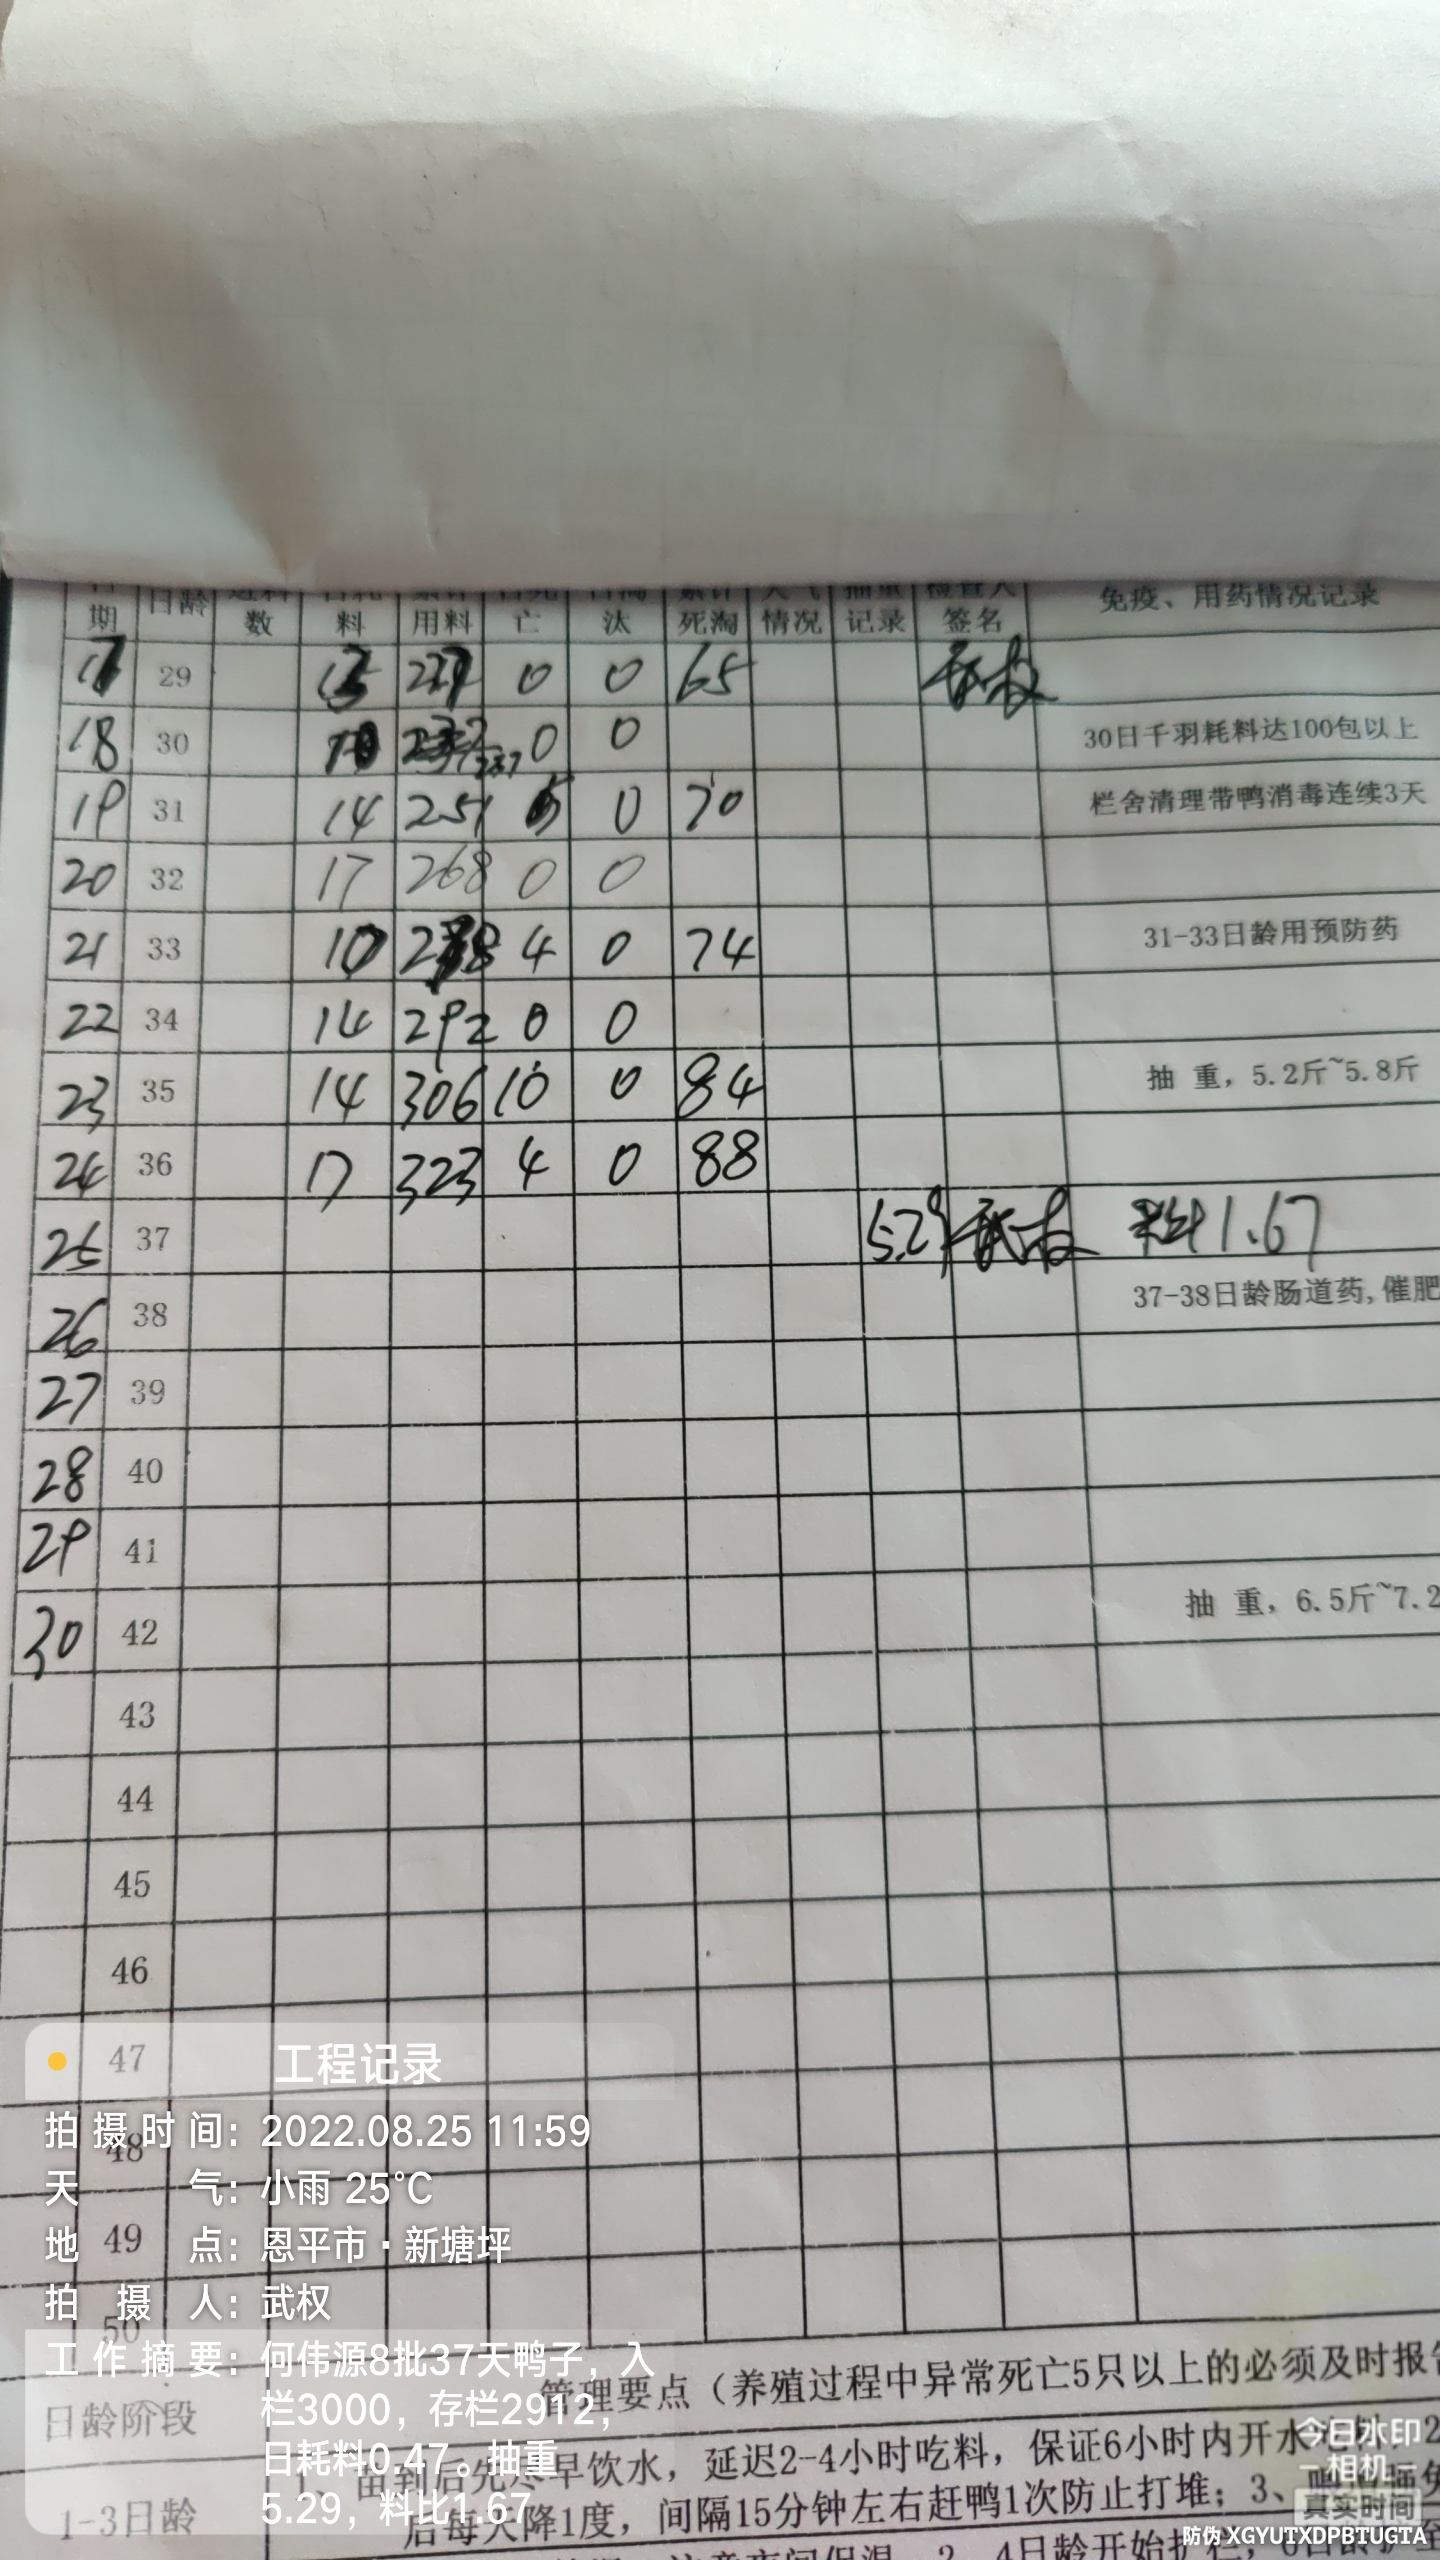 期 日龄 数 料 用料 亡 汰 死淘 情况 记录 签名 免疫、用药情况记录
17 29 13 237 0 0 65 武权
18 30 0 0 30日千羽耗料达100包以上
237
19 31 14 251 5 0 70 栏舍清理带鸭消毒连续3天
20 32 17 268 0 0
21 33 10 278 4 0 74 31-33日龄用预防药
22 34 14 292 0 0
23 35 14 306 10 0 84 抽 重，5.2斤~5.8斤
24 36 17 323 4 0 88
25 37 5.29 武权 料1.67
26 38 37-38日龄肠道药,催肥
27 39
28 40
29 41
30 42 抽 重，6.5斤~7.2
43
44
45
46
47
48
49
50
工程记录
拍摄时间：2022.08.25 11:59
天气：小雨 25℃
地点：恩平市·新塘坪
拍摄人：武权
工作摘要：何伟源8批37天鸭子，入
栏3000，存栏2912，
日耗料0.47。抽重
5.29，料比1.67
日龄阶段 管理要点（养殖过程中异常死亡5只以上的必须及时报告
1-3日龄 1、苗到后先尽早饮水，延迟2-4小时吃料，保证6小时内开水
后每天降1度，间隔15分钟左右赶鸭1次防止打堆；3、
4日龄开始扩栏，
今日水印
相机
真实时间
防伪 XGYUTXDPBTUGTA